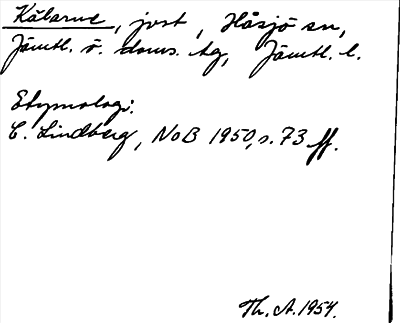 Kälarne, jvst, Håsjö sn,
Jämtl. ö. doms. tg, Jämtl. l.
Etymologi:
C. Lindberg, NoB 1950, s. 73 ff.
Th. A. 1954.